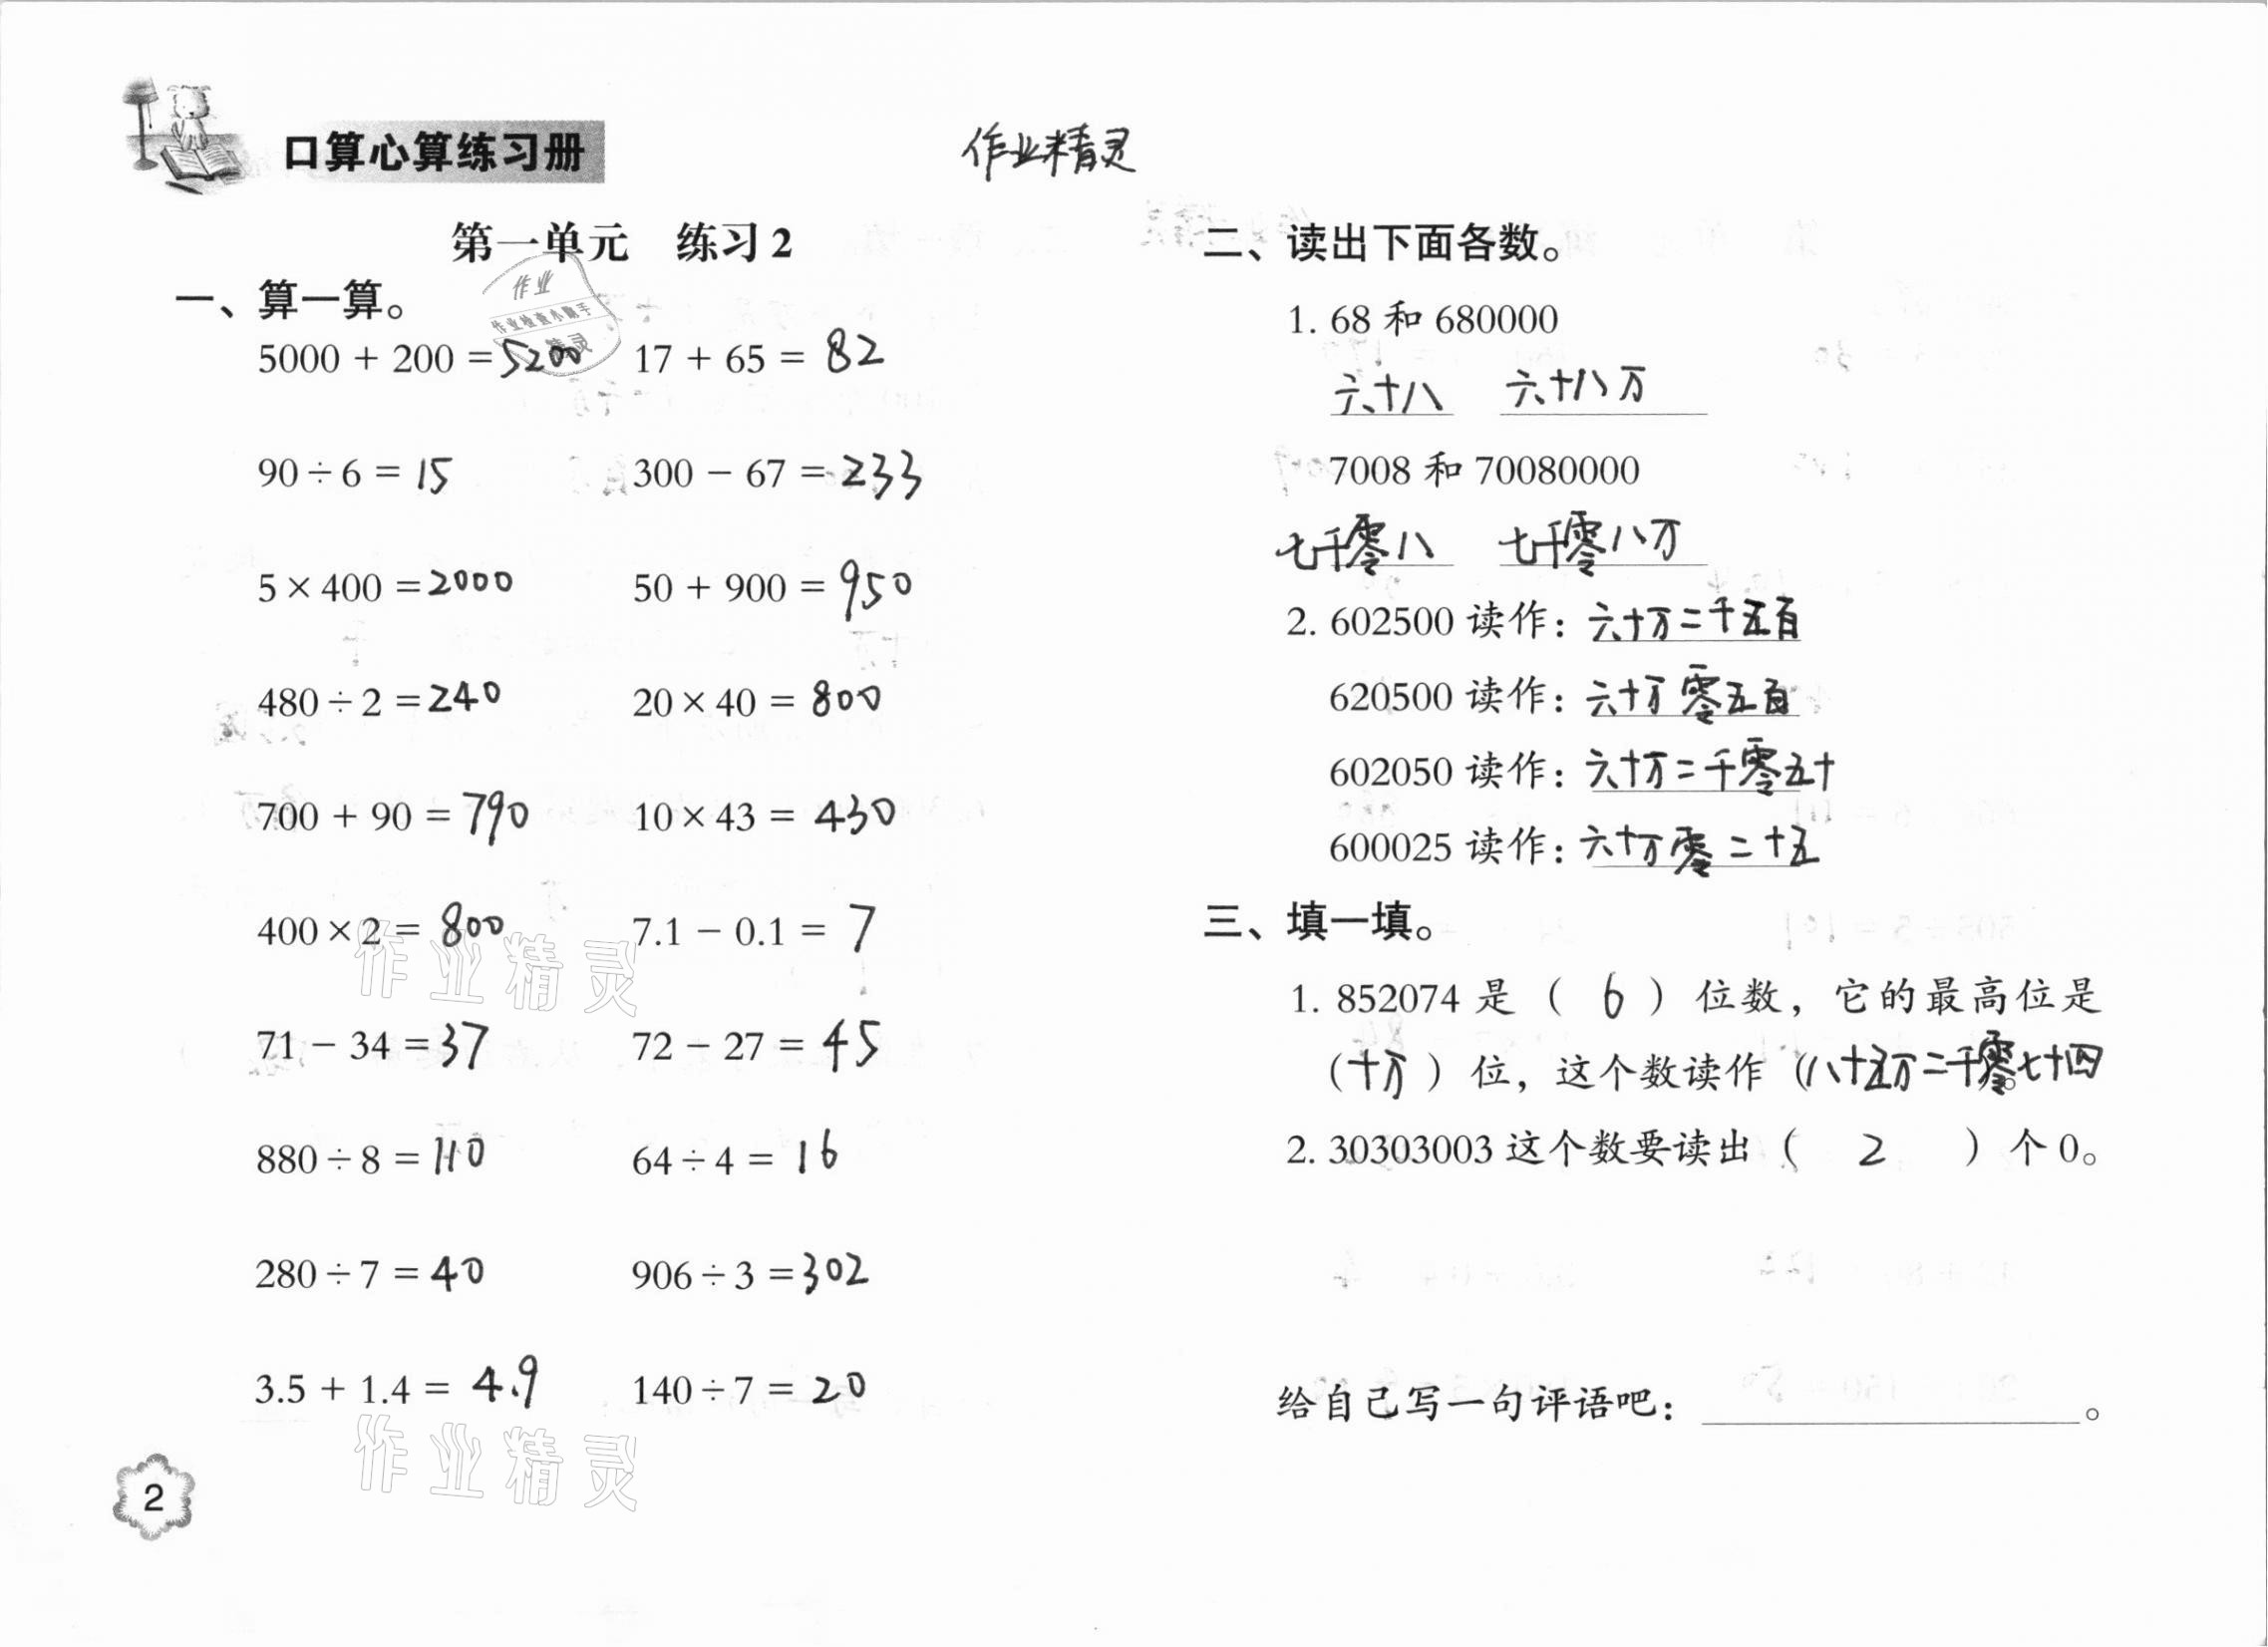 口算心算练习册
作业精灵
第一单元 练习2
一、算一算。
作业
作业检查小助手
精灵
5000 + 200 = 5200 17 + 65 = 82
90 ÷ 6 = 15 300 − 67 = 233
5 × 400 = 2000 50 + 900 = 950
480 ÷ 2 = 240 20 × 40 = 800
700 + 90 = 790 10 × 43 = 430
400 × 2 = 800 7.1 − 0.1 = 7
作业精灵
71 − 34 = 37 72 − 27 = 45
880 ÷ 8 = 110 64 ÷ 4 = 16
280 ÷ 7 = 40 906 ÷ 3 = 302
3.5 + 1.4 = 4.9 140 ÷ 7 = 20
作业精灵
2
二、读出下面各数。
1. 68 和 680000
六十八 六十八万
7008 和 70080000
七千零八 七千零八万
2. 602500 读作：六十万二千五百
620500 读作：六十万零五百
602050 读作：六十万二千零五十
600025 读作：六十万零二十五
三、填一填。
1. 852074 是（ 6 ）位数，它的最高位是
（十万）位，这个数读作（八十五万二千零七十四）。
2. 30303003 这个数要读出（ 2 ）个 0。
给自己写一句评语吧：。